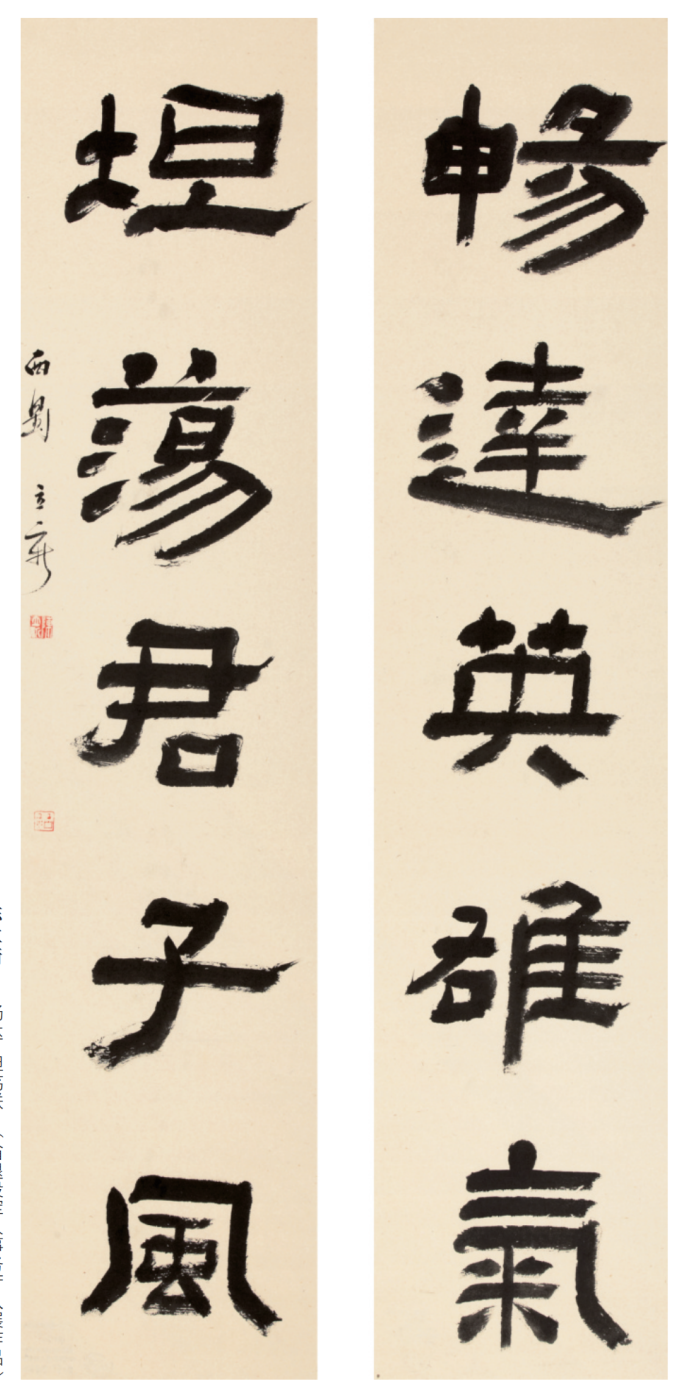 暢達英雄氣
坦蕩君子風
西蜀